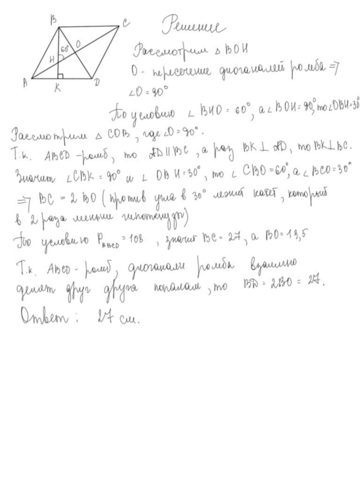 B
C
60°
O
H
A
K
D
Решение
Рассмотрим △ BOH
O - пересечение диагоналей ромба ⇒
∠O = 90°
По условию ∠ BHO = 60°, а ∠BOH = 90°, то ∠OBH = 30°
Рассмотрим △ COB, где ∠O = 90°.
Т.к. ABCD - ромб, то AD ∥ BC, а раз BK ⊥ AD, то BK ⊥ BC.
Значит ∠CBK = 90° и ∠ OBH = 30°, то ∠ CBO = 60°, а ∠BCO = 30°
⇒ BC = 2 BO (против угла в 30° лежит катет, который
в 2 раза меньше гипотенузы)
По условию P = 108, значит BC = 27, а BO = 13,5
Т.к. ABCD - ромб, диагонали ромба взаимно
делят друг друга пополам, то BD = 2BO = 27.
Ответ: 27 см.